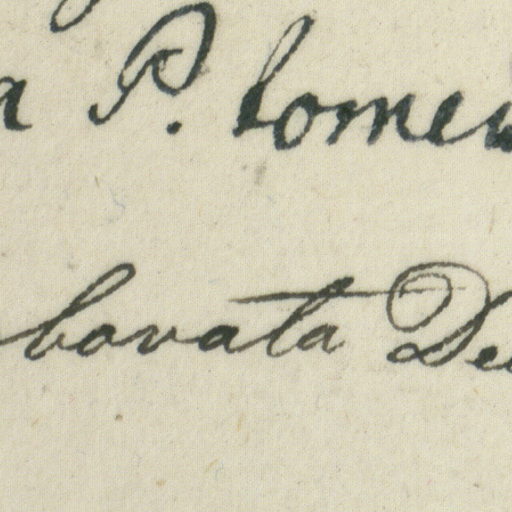 a P. tomen
bovata De